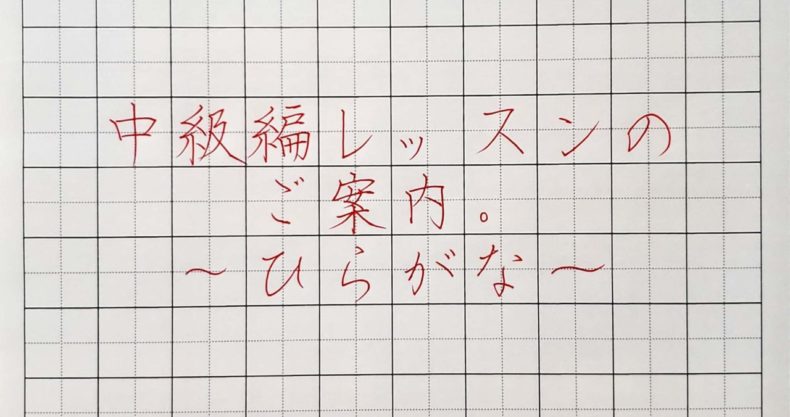 中級編レッスンの
ご案内。
～ひらがな～